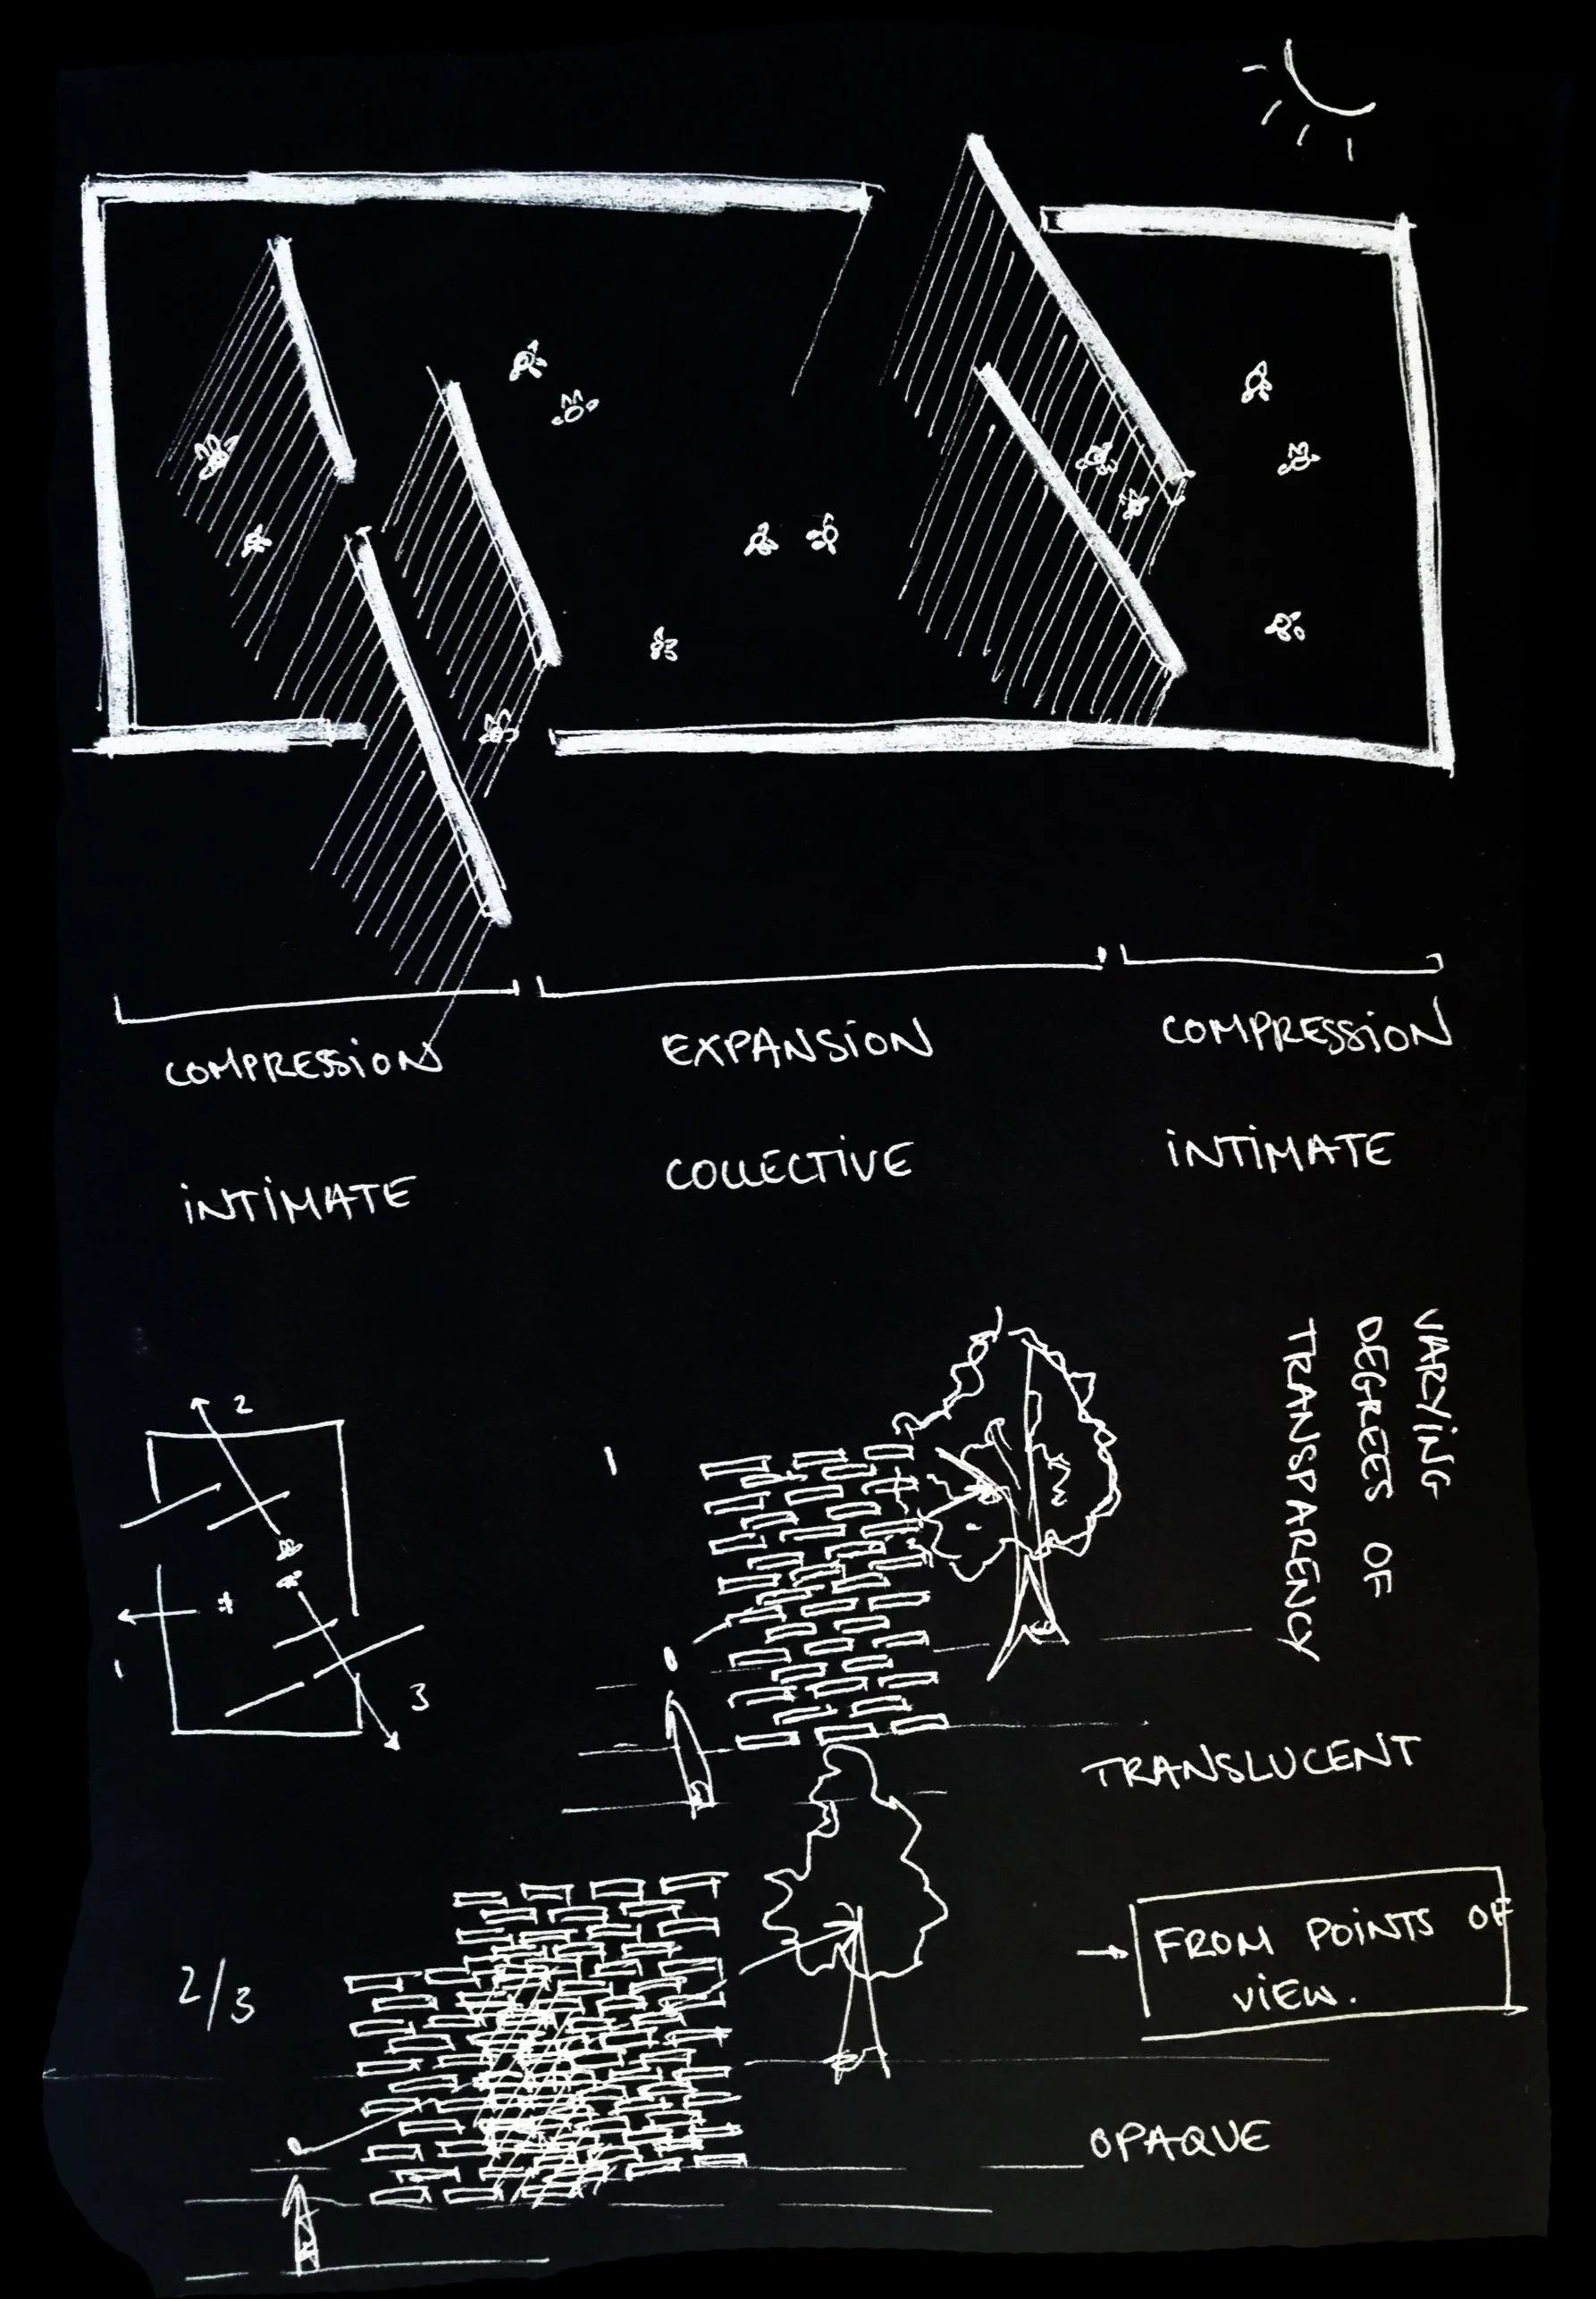 COMPRESSION
EXPANSION
COMPRESSION
INTIMATE
COLLECTIVE
INTIMATE
VARYING
DEGREES OF
TRANSPARENCY
2
1
3
1
TRANSLUCENT
2/3
FROM POINTS OF
VIEW.
OPAQUE